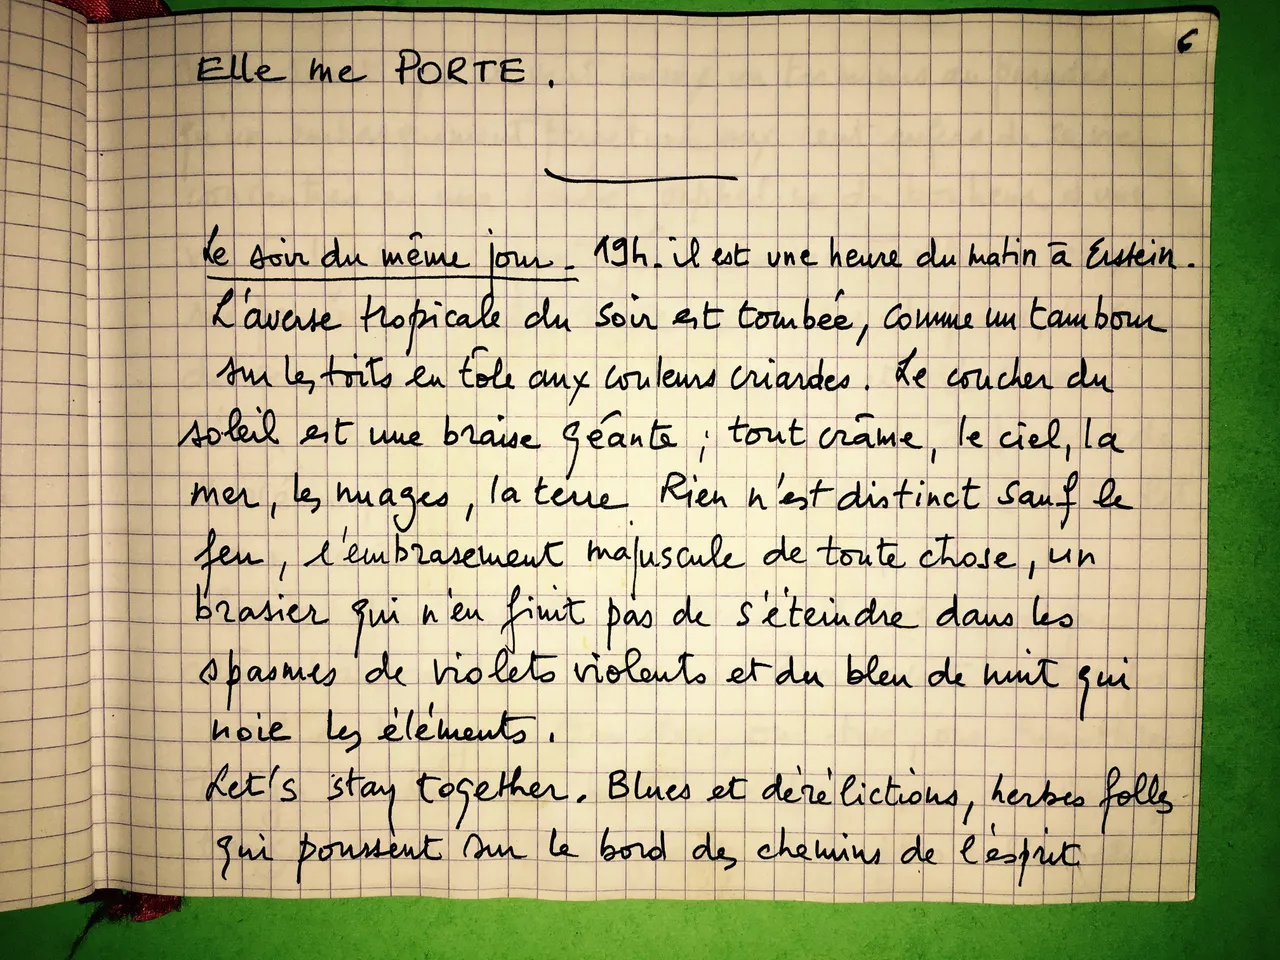 6
Elle me PORTE.
Le soir du même jour_ 19h. il est une heure du matin à Erstein.
L'averse tropicale du soir est tombée, comme un tambour
sur les toits en tôle aux couleurs criardes. Le coucher du
soleil est une braise géante ; tout crâme, le ciel, la
mer, les nuages, la terre Rien n'est distinct sauf le
feu, l'embrasement majuscule de toute chose, un
brasier qui n'en finit pas de s'éteindre dans les
spasmes de violets violents et du bleu de nuit qui
noie les éléments.
Let's stay together. Blues et dérélictions, herbes folles
qui poussent sur le bord des chemins de l'esprit